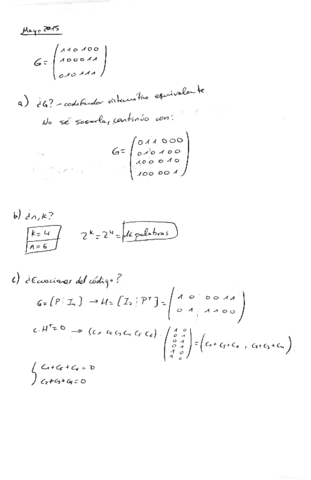 Mayo 2015
G = (110100
100011
010111)
a) ¿G? - codificador sistemático equivalente
No sé sacarla, continúo con:
G = (011000
010100
100010
100001)
b) ¿n, k?
k = 4
n = 6
2^k = 2^4 = 16 palabras
c) ¿Ecuaciones del código?
G = [P : In] → H = [I2 : P^T] = (1 0 : 0 0 1 1
0 1 : 1 1 0 0)
c·H^T = 0 → (c1 c2 c3 c4 c5 c6) · (1 0
0 1
0 1
0 1
1 0
1 0) = (c1+c5+c6, c2+c3+c4)
{c1+c5+c6=0
c2+c3+c4=0